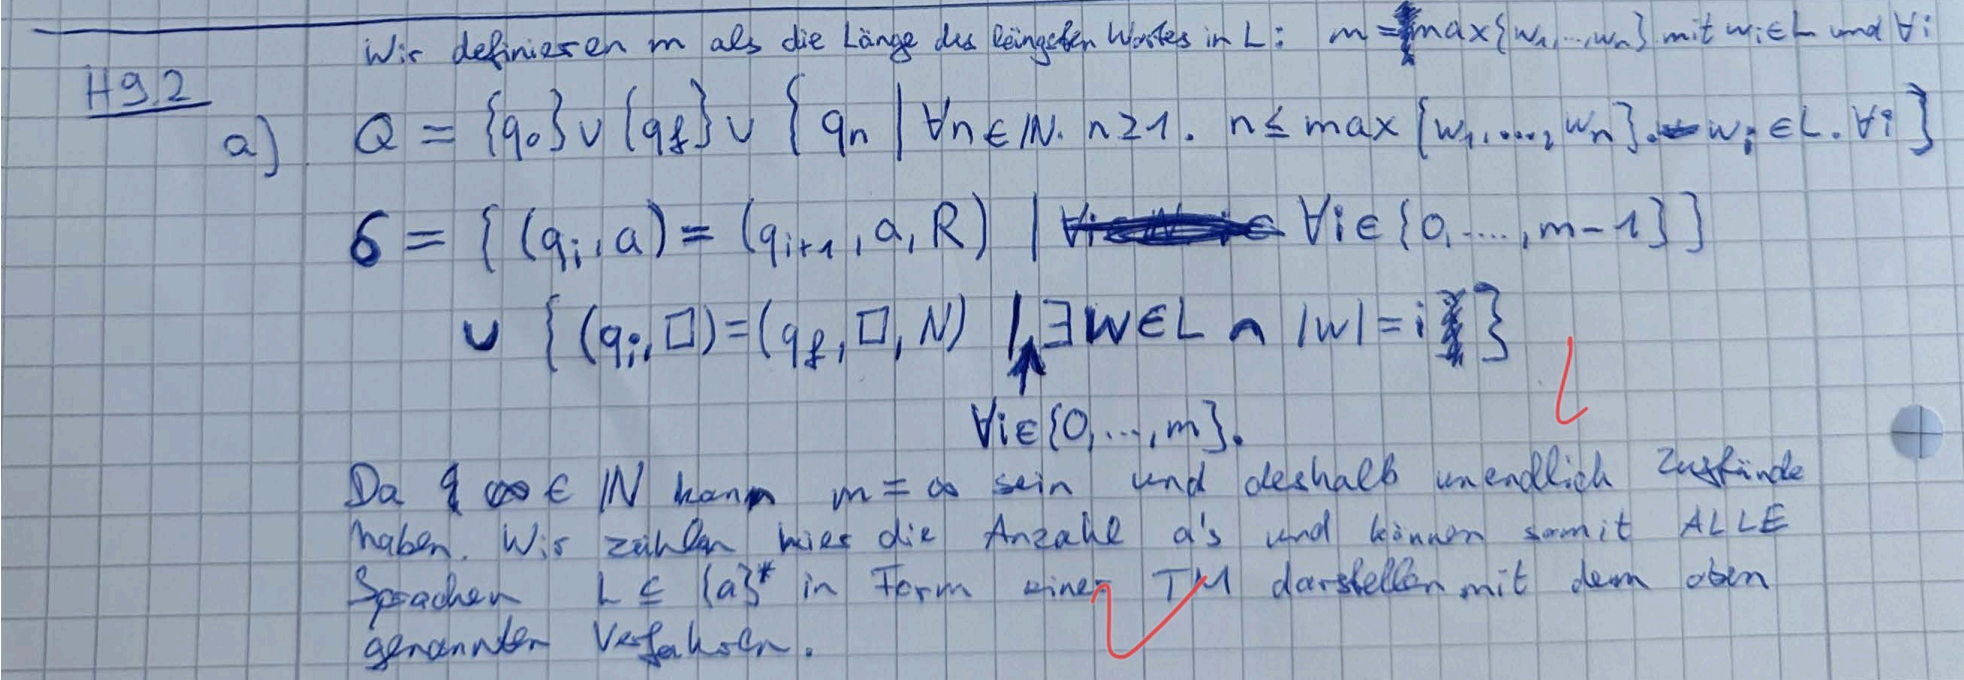 Wir definieren m als die Länge des längsten Wortes in L: m = max{w₁,...,wₙ} mit wᵢ∈L und ∀i
H9.2
a) Q = {q₀} ∪ {q_f} ∪ {qₙ | ∀n∈ℕ. n≥1. n ≤ max{w₁,...,wₙ}. wᵢ∈L. ∀i}
δ = {(qᵢ, a) = (qᵢ₊₁, a, R) | ∀i∈{0,...,m-1}}
∪ {(qᵢ, □) = (q_f, □, N) | ∃w∈L ∧ |w| = i}
∀i∈{0,...,m}.
Da ∞ ∈ ℕ kann m = ∞ sein und deshalb unendlich Zustände
haben. Wir zählen hier die Anzahl a's und können somit ALLE
Sprachen L ⊆ {a}* in Form einer TM darstellen mit dem oben
genannten Verfahren.